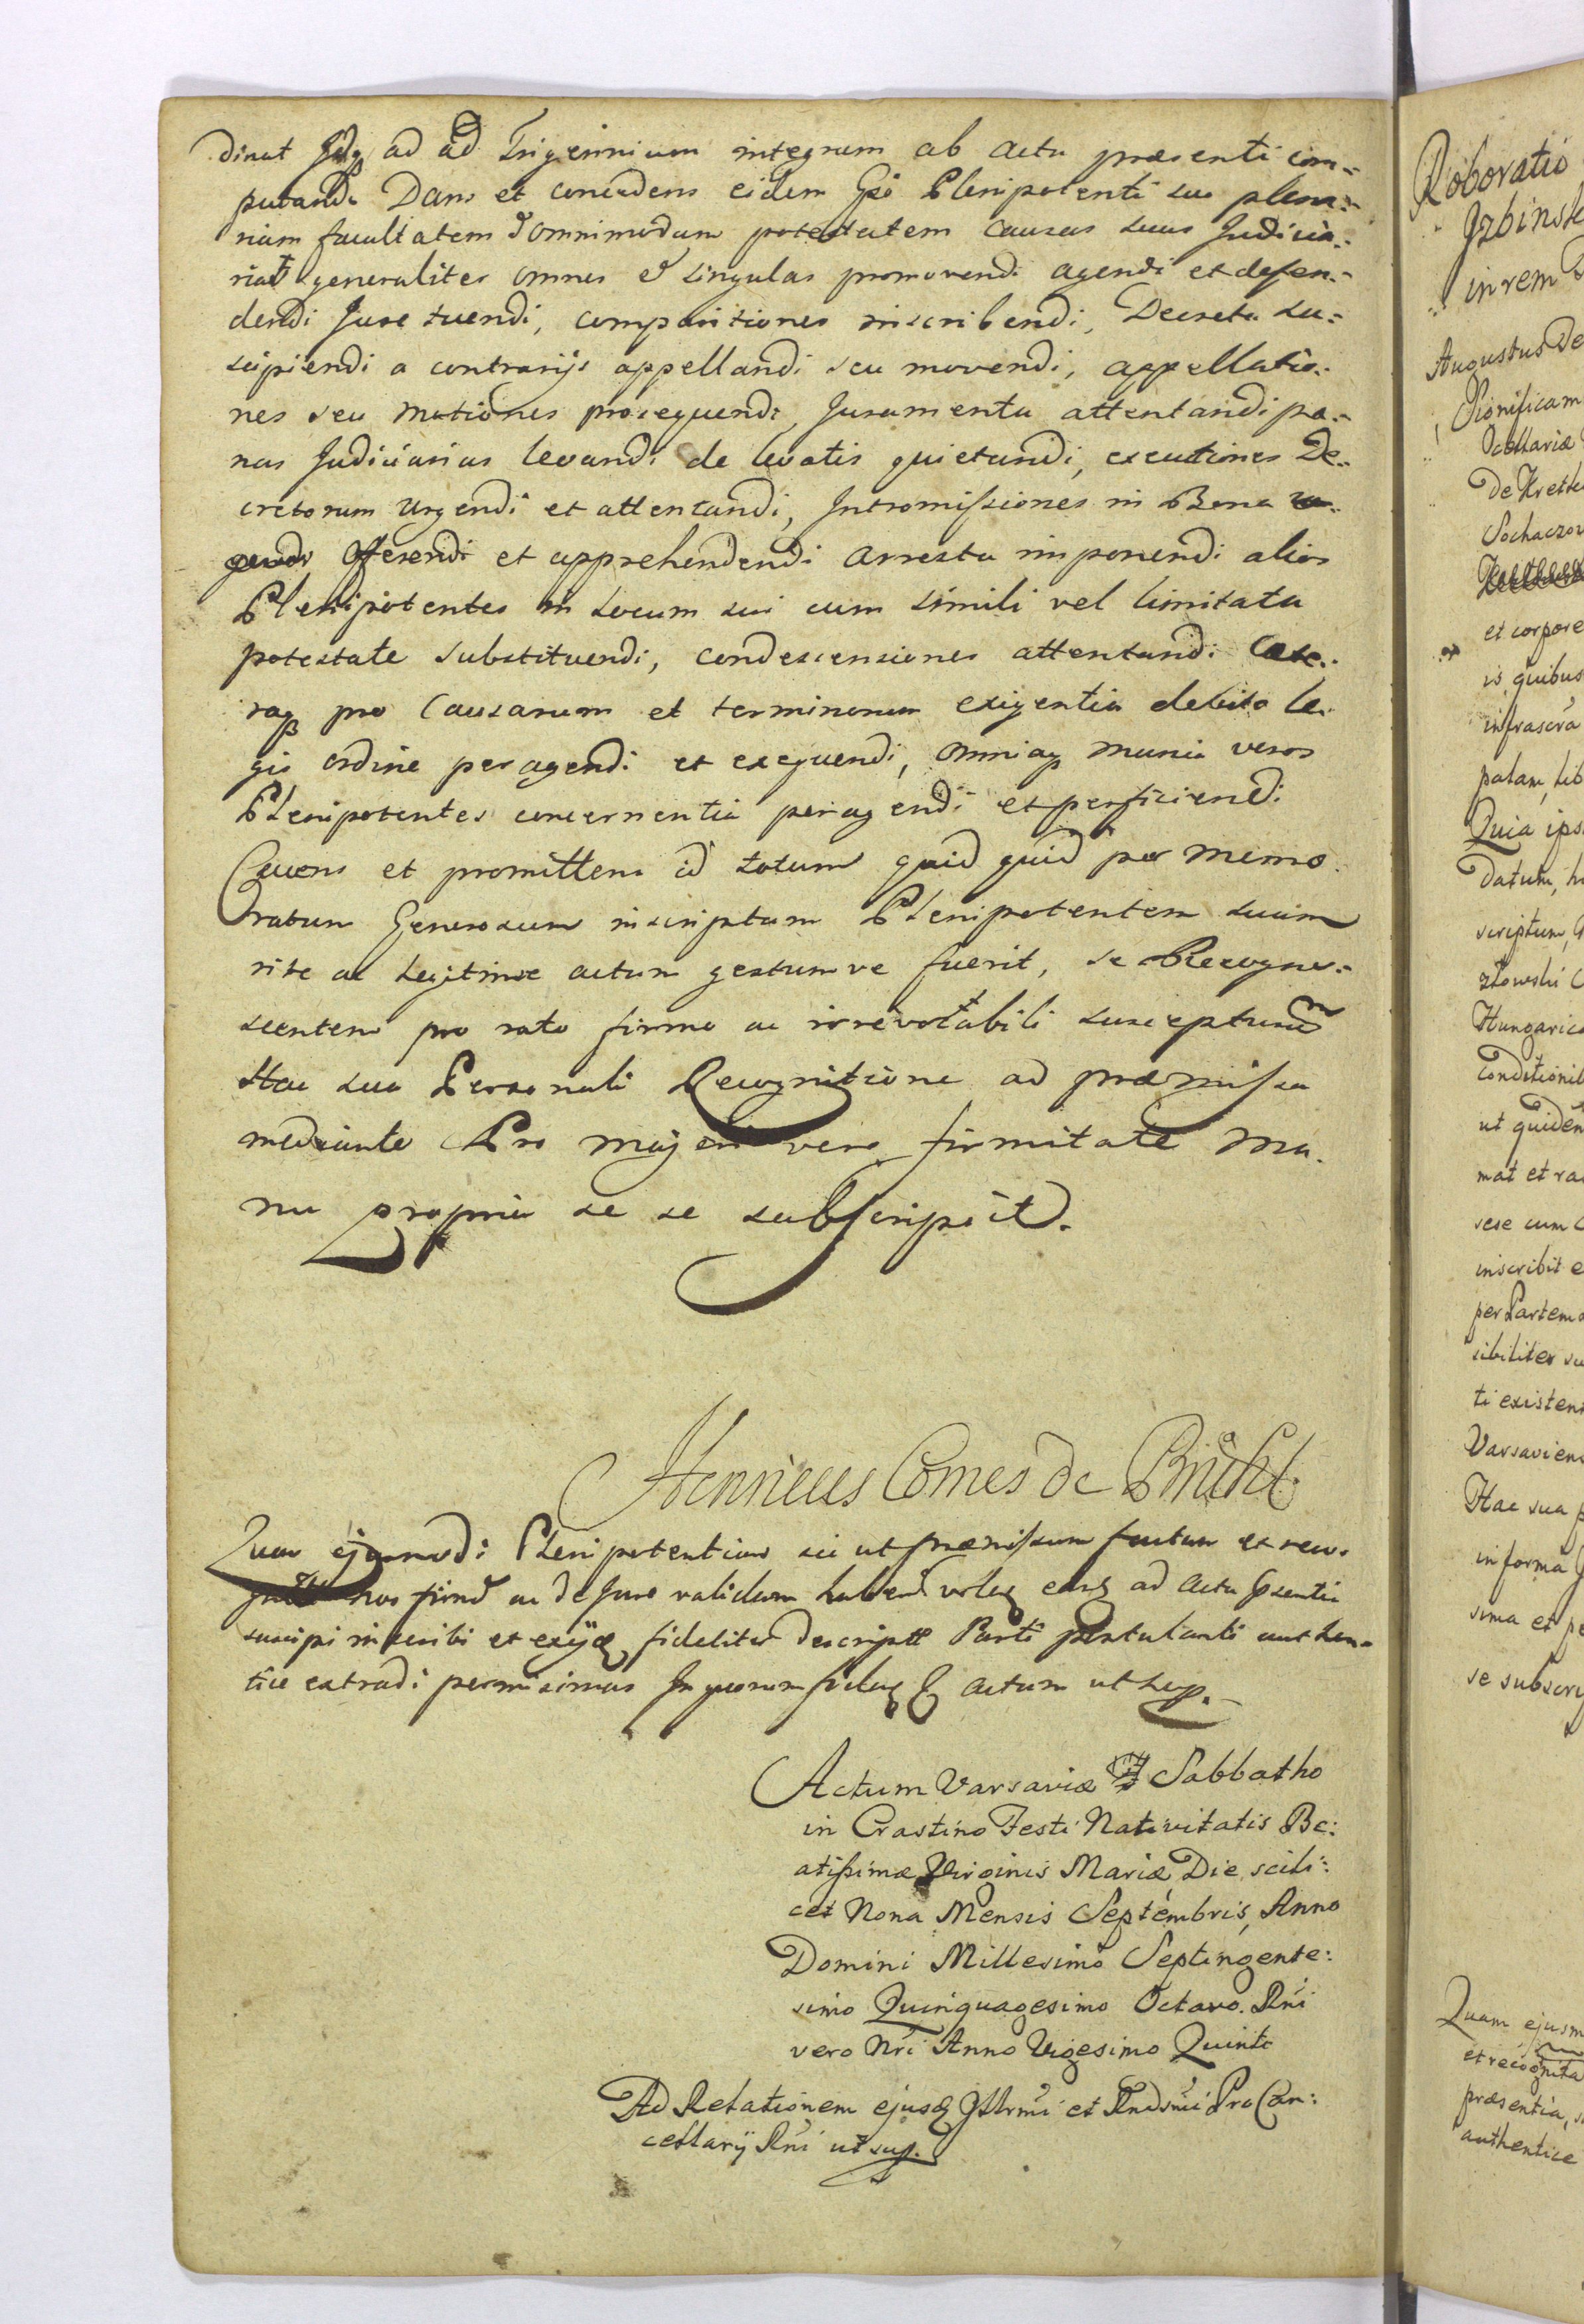 dinat Idq ad ad Trigennium integrum ab actu præsenti com=
putandi Dans et concedens eidem Gso Plenipotenti suo plena=
riam facultatem & omnimodam potestatem causas suas Judicia=
rias generaliter omnes & singulas promovendi agendi et defen=
dendi Jure tuendi, compositiones inscribendi, Decreta su=
scipiendi a contrarijs appellandi seu movendi, appellatio=
nes seu motiones prosequendi, Juramenta attentandi pæ=
nas Judiciarias levandi de levatis quietandi, executiones De=
cretorum Urgendi et attentandi, Intromissiones in Bona
Offerendi et apprehendendi arresta imponendi alios
Plenipotentes in Locum sui cum simili vel limitata
potestate substituendi, condescensiones attentandi Cæte=
raq pro Causarum et terminorum exigentia debito le=
gis ordine peragendi et exequendi, Omniaq munia veros
Plenipotentes concernentia peragendi et perficiendi
Cavens et promittens id totum quid quid per memo=
ratum Generosum inscriptum Plenipotentem suum
rite ac Legitime actum gestumve fuerit, se Recogno=
scentem pro rato firmo ac irrevocabili suscepturum
Hac sua Personali Recognitione ad præmissa
mediante Pro majori vero firmitate ma=
nu propria se se subscripsit.
Henricus Comes de Brühl
Quam ejusmodi Plenipotentiam sic ut præmissum factam et reco=
nos firmd ac de Jure validam habend volq eamq ad Acta Psentia
suscipi inscribi et exijsq fideliter descriptt Parti postulanti authen=
tice extradi permisimus In quorum fiduq & Actum ut sup.
Actum Varsaviæ Sabbatho
in Crastino Festi Nativitatis Be=
atissimæ Virginis Mariæ Die scili=
cet Nona Mensis Septembris, Anno
Domini Millesimo Septingente=
simo Quinquagesimo Octavo. Rni
vero Nri Anno Vigesimo Quinto
Ad Relationem ejusq Illrmi et Rndsmi Pro Can=
cellarij Rni ut sup.
Roboratio
Izbinsk
in rem
Augustus De
Significam
De Kretk
Sochaczov
et corpore
is, quibus
infrascra
palam, lib
Quia ips
Datum, h
scriptum, G
złowski C
Hungarica
Conditionib
ut quidem
mat et ra
sese cum
inscribit e
per Partem
sibiliter su
ti existen
Varsaviens
Hac sua p
in forma J
sima et pe
se subscri
Quam ejusm
et recognita
præsentia, s
authentice